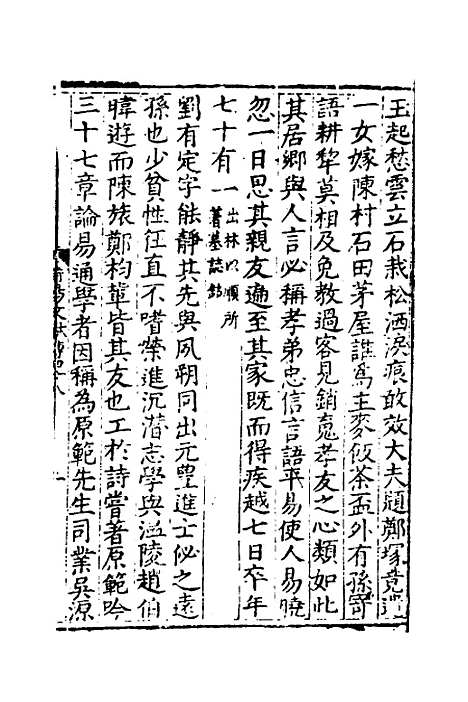 玉起愁雲立石栽松洒淚痕敢效大夫題鄭塚竟
一女嫁陳村石田茅屋誰為主麥飯茶盃外有孫寄
語耕犂莫相及免教過客見銷䰟孝友之心類如此
其居鄉與人言必稱孝弟忠信言語平易使人易曉
忽一日思其親友遍至其家既而得疾越七日卒年
七十有一出林以順所著墓誌銘
劉有定字能靜其先與夙朔同出元豊進士佖之遠
孫也少貧性狂直不嗜榮進沉潜志學與溢陵趙伯
暐遊而陳旅鄭杓軰皆其友也工於詩嘗著原範吟
三十七章論易通學者因稱為原範先生司業吳源